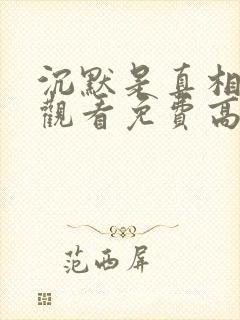 沉默是真相
觀看免費高
范西屏